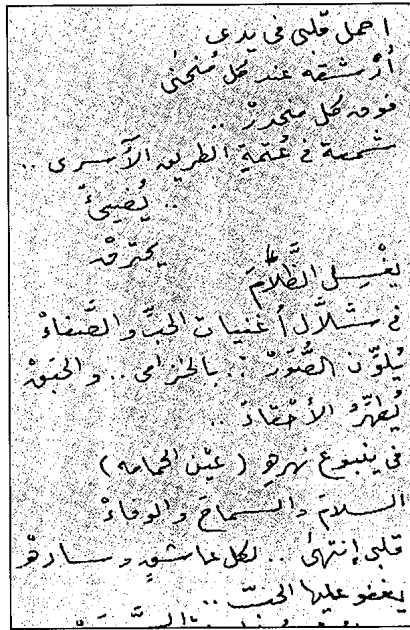 احمل قلبي في يدي
أُرشقه عند كل مُنحنى
فوق كل منحدرْ ..
شمعة في عُتمةِ الطريق الأسرى ..
.. يُضيئُ
يحترقْ
يغْسِل الظَّلاَمَ
في شلَّال أغنيات الحبِّ والصَّفاءْ
يُلوِّن الصُّوَرْ .. بالخزامى .. والحبَقْ
يُطهِّرُ الأحْقادَ ..
في ينبوع نهر هو (عيْن الحمامه)
السلامَ والسماحَ والوفاءْ
قلبي إنتهىَ .. لكل عاشقٍ وساد
يغفو عليها الحبّ ..